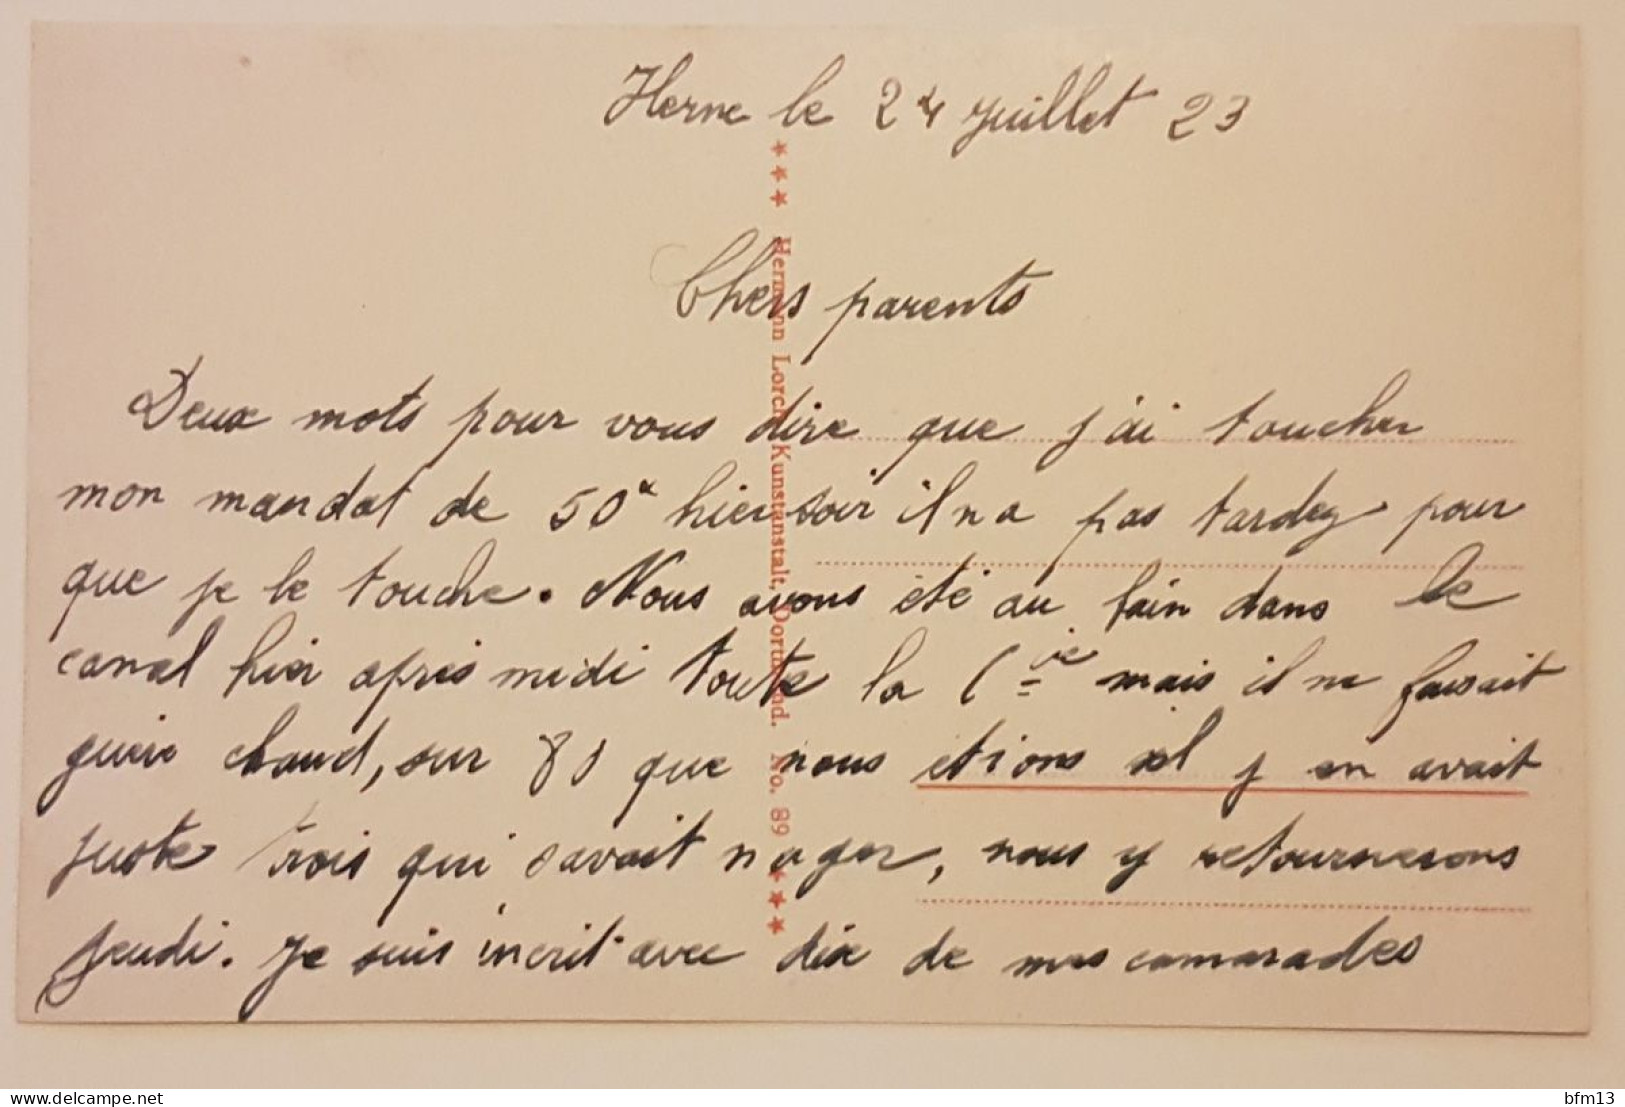 Herne le 24 Juillet 23
Chers parents
Deux mots pour vous dire que j'ai toucher
mon mandat de 50 hier soir il n a pas tardez pour
que je le touche. Nous avons été au bain dans le
canal hier après midi toute la Cie mais il ne faisait
guère chaud, sur 80 que nous etions il y en avait
juste trois qui savait nager, nous y retournerons
jeudi. Je suis incrit avec dix de mes camarades
*** Hermann Lorch, Kunstanstalt, Dortmund. No. 89 ***
www.delcampe.net
bfm13